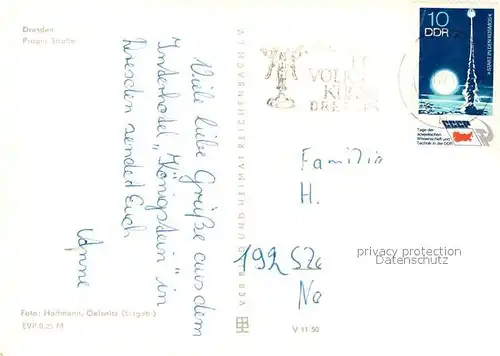 Dresden
Prager Straße
Viele liebe Grüße aus dem
Interhotel „Königstein" in
Dresden sendet Euch
Anne
Foto: Hoffmann, Oelsnitz (Erzgeb.)
EVP 0,25 M
V 11 50
VOLK
KUN
DRE
10
DDR
START IN DEN KOSMOS
Tage der
sowjetischen
Wissenschaft und
Technik in der DDR
Familie
H.
192
No
privacy protection
Datenschutz